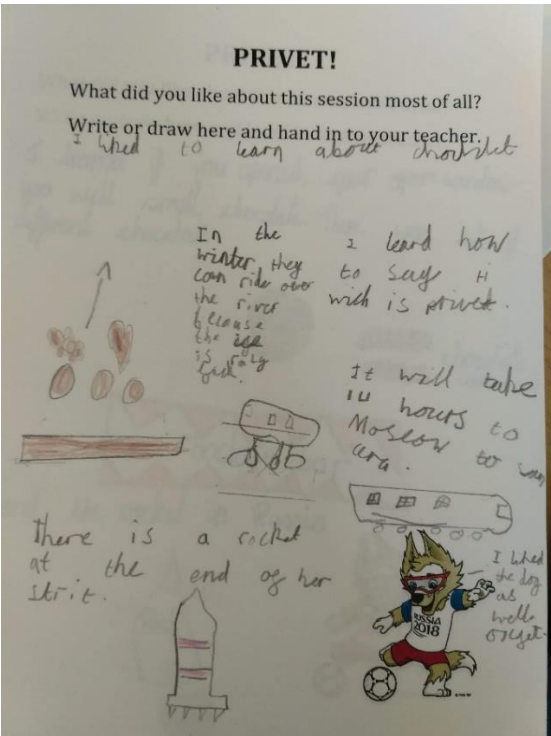 PRIVET!
What did you like about this session most of all?
Write or draw here and hand in to your teacher.
I liked to learn about
In the
winter they
can ride over
the river
because
the ice
is
I leard how
to say Hi
wich is privet.
It will take
14 hours to
Moscow to
ara.
There is a rocket
at the end of her
Strit.
I liked
the dog
as
well
RUSSIA
2018